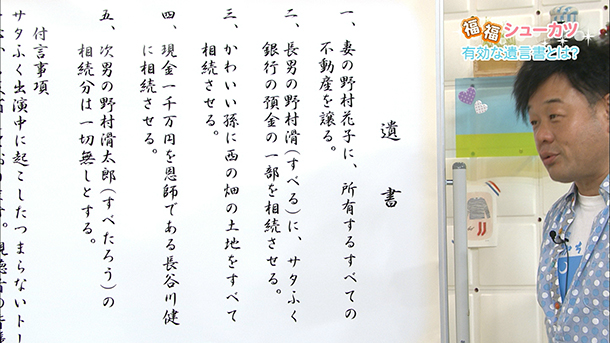 福福シューカツ
有効な遺言書とは?
遺書
一、妻の野村花子に、所有するすべての
不動産を譲る。
二、長男の野村滑(すべる)に、サタふく
銀行の預金の一部を相続させる。
三、かわいい孫に西の畑の土地をすべて
相続させる。
四、現金一千万円を恩師である長谷川健
に相続させる。
五、次男の野村滑太郎(すべたろう)の
相続分は一切無しとする。
付言事項
サタふく出演中に起こしたつまらないトー